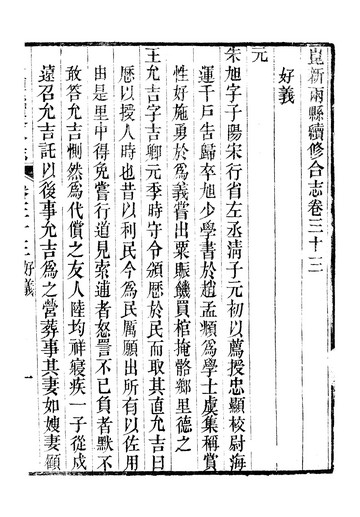 崑新兩縣續修合志卷三十三
好義
元
朱旭字子陽宋行省左丞淸子元初以薦授忠顯校尉海
運千戶告歸卒旭少學書於趙孟頫爲學士虞集稱賞
性好施勇於爲義嘗出粟賑饑買棺掩骼鄉里德之
王允吉字吉卿元季時守令頒厯於民而取其直允吉曰
厯以授人時也昔以利民今爲民厲願出所有以佐用
由是里中得免嘗行道見索逋者怒詈不已負者默不
敢答允吉惻然爲代償之友人陸均祥寢疾一子從戍
遠召允吉託以後事允吉爲之營葬事其妻如嫂妻顧
卷三十三 好義
一